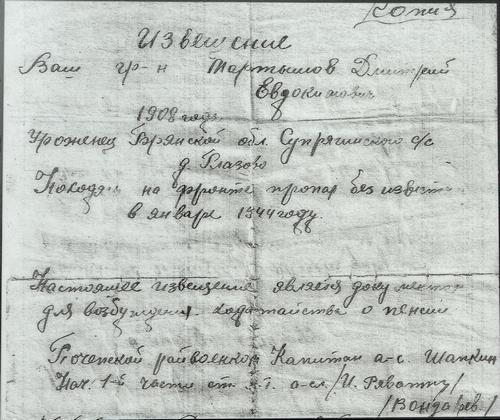 Копия
Извещение
Ваш гр-н Мартынов Дмитрий
Евдокимович
1908 года
Уроженец Брянской обл. Супрягинского с/с
д. Глазово
Находясь на фронте пропал без вести
в январе 1944 году.
Настоящее извещение является документом
для возбуждения ходатайства о пенсии
Почепской райвоенком Капитан а-с. Шапкин
Нач. 1-й части ст. л-т. а-сл
/Бондарев/